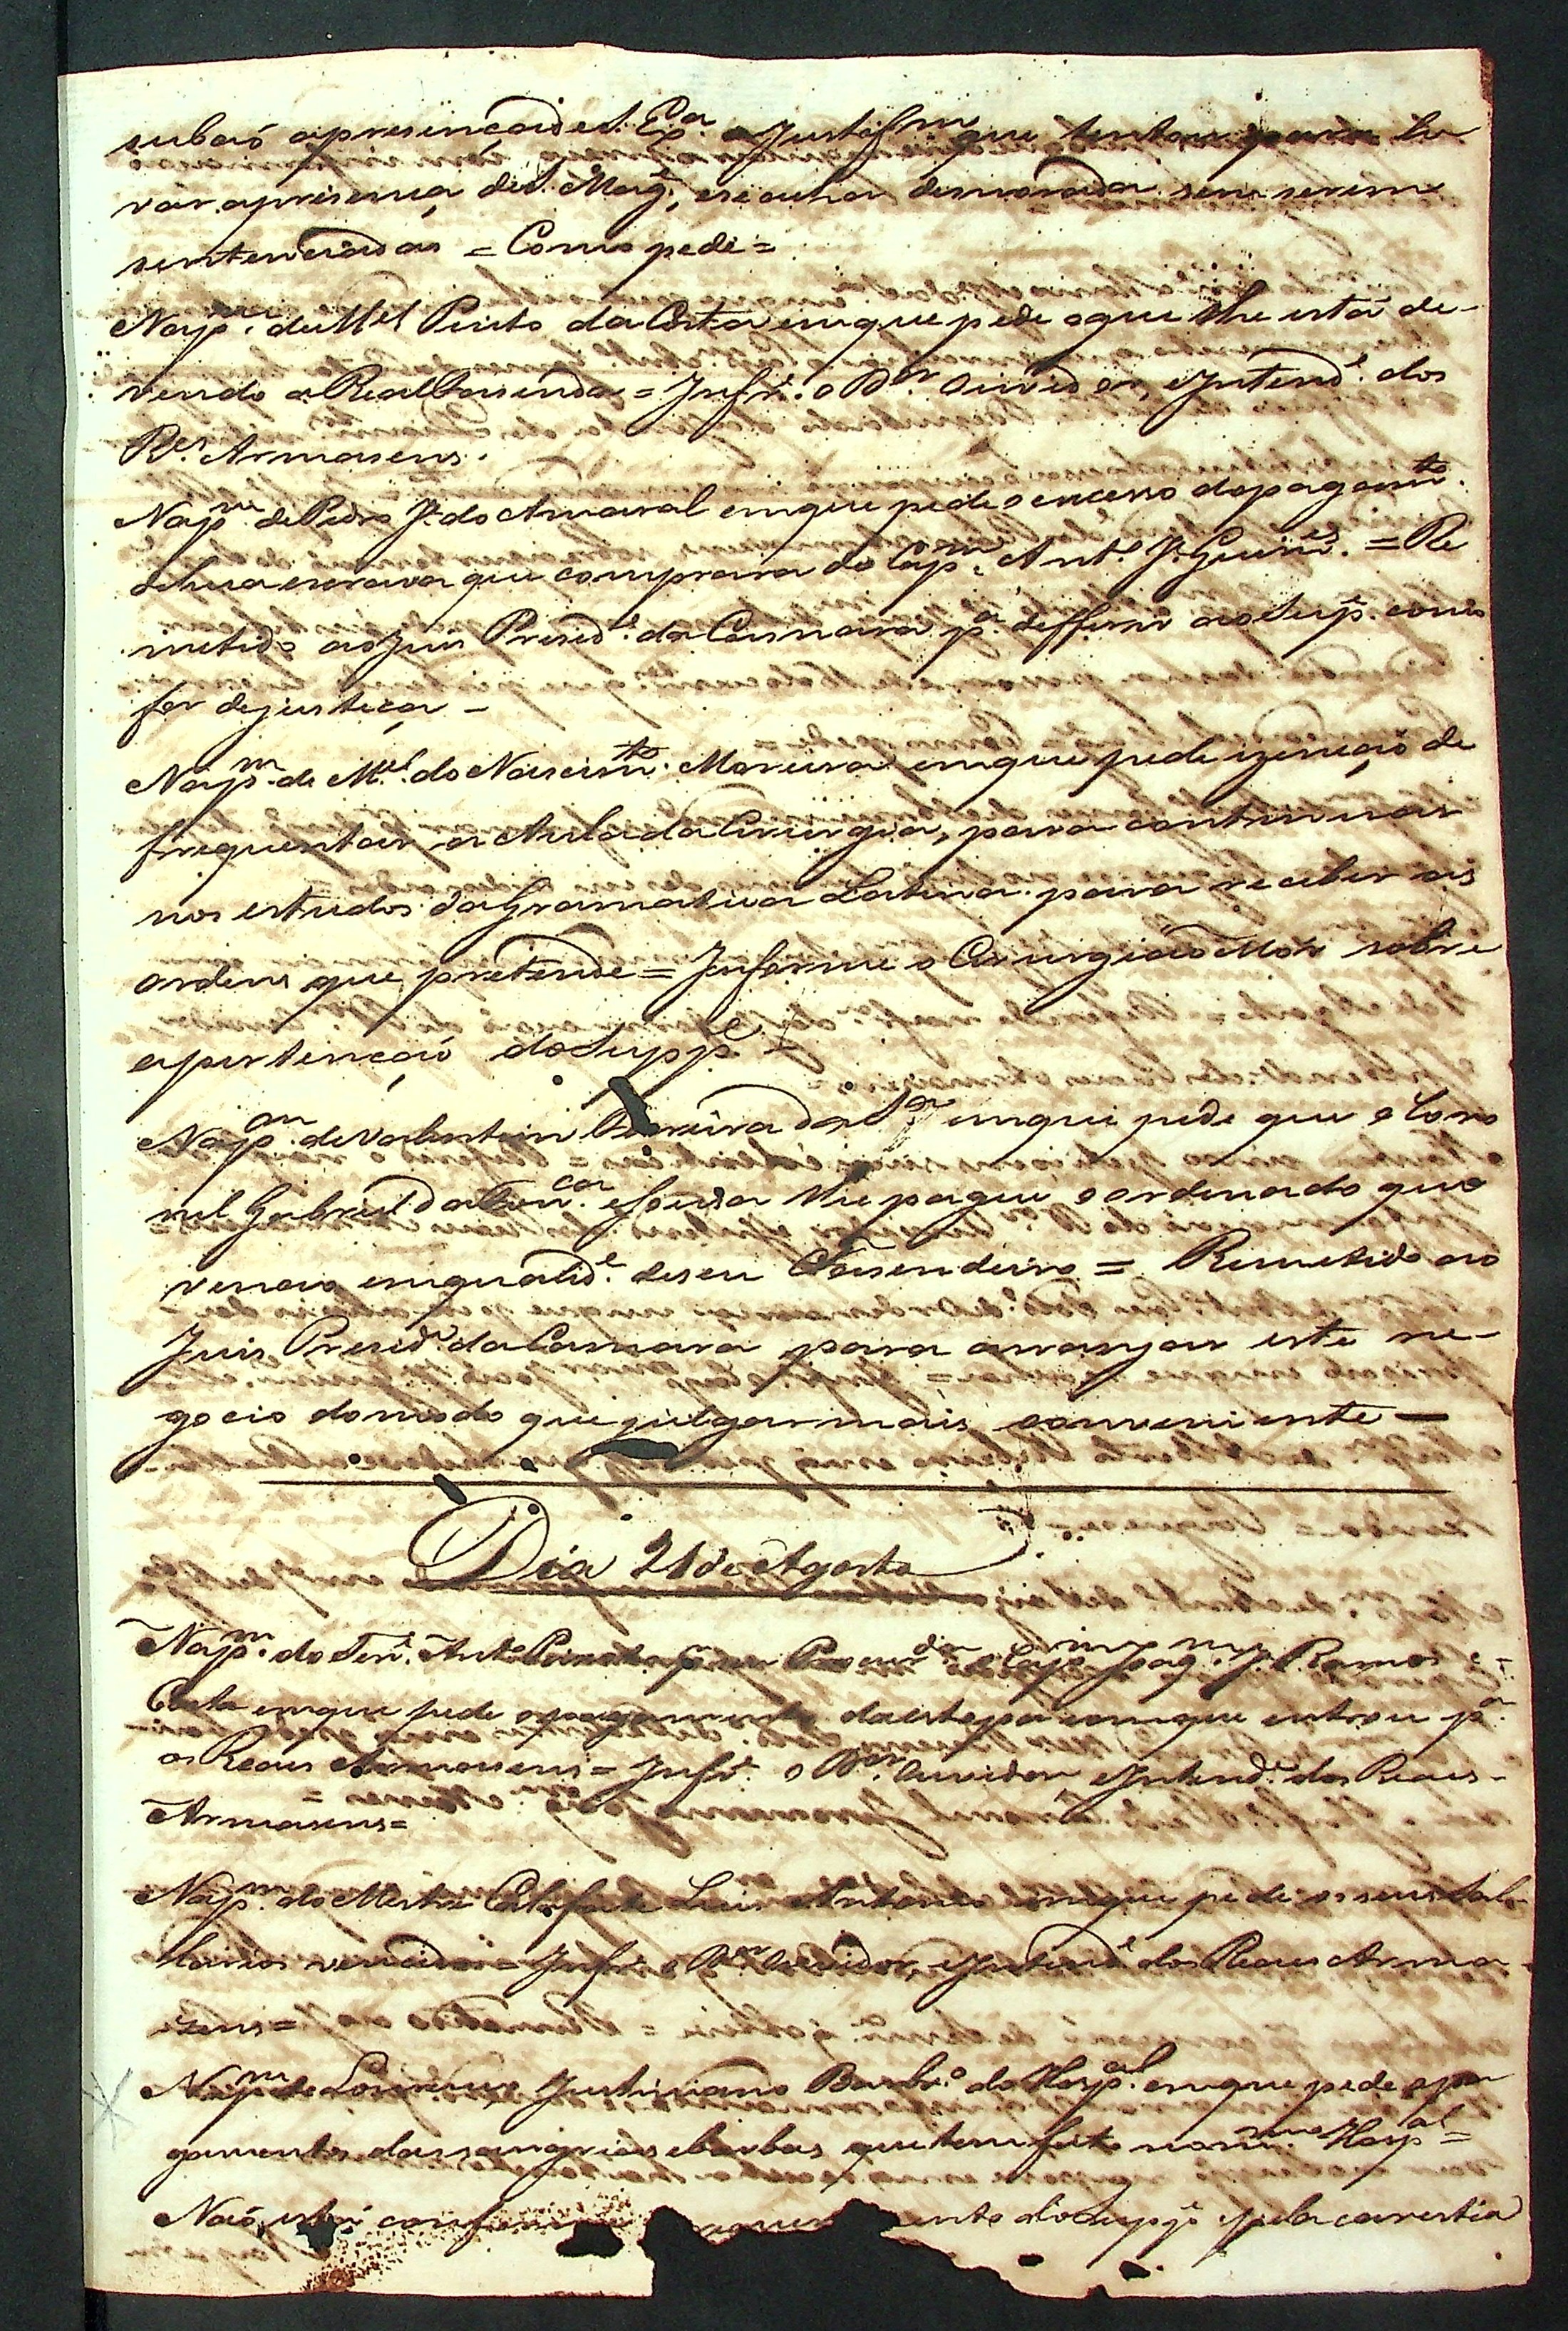 subaó apresença de S. Ex.ª a Justif.m que tentou para le
var apresença de S. Mag.e, ese acha demorada sem serem
sentenciadas = Como pede =
Na p.m de M.el Pinto da Costa emque pede oque lhe está de-
vendo a Real Fasenda = Infr.e o D.or Ouvidor, eIntend.e dos
R.es Armasens.
Na p.m de Pedro J.e do Amaral emque pede o excesso do pagam.to
dehua escrava que comprara do Cap.m Ant.o J.e Guim.es = Re
metido ao Juis Presid.e da Camara p.a defferir ao Sup.e como
for dejustiça -
Na p.m de M.el do Nascim.to Moreira emque pede izenção de
frequentar a Aula da Cirurgia, para continuar
nos estudos da Gramatica Latina para receber as
ordens que pretende = Informe o Cirurgião Mór sobre
apertenção do Supp.e -
Na p.m de Valentim Ferreira da S.a emque pede que o Coro
nel Gabriel da Fon.ca eSousa lhe pague o ordenado que
venceo emqualid.e deseu Fasendeiro = Remetido ao
Juis Presid.e da Camara para arranjar este ne-
gocio domodo que julgar mais conveniente —
Dia 21 de Agosto
Na p.m do Ten.e Ant.o por seu Procur.dor o Cap.m Joaq.m J.e Ramos e
Costa emque pede o pagamento da estopa comque entrou p.a
os Reaes Armasens = Infr.e o D.or Ouvidor eIntend.e dos Reaes-
Armasens=
Na p.m do Mestre Calafate Luis Antonio emque pede os seus Sal-
larios vencidos = Infr.e o D.or Ouvidor, eIntend.e dos Reaes Arma-
zens=
Na p.m de Lourenço Justiniano Barb.ro do Hosp.al emque pede o pa
gamento das sangrias ebarbas que tem feito no m.mo Hosp.al =
Naó está conforme requerimento do supp.e epela carestia